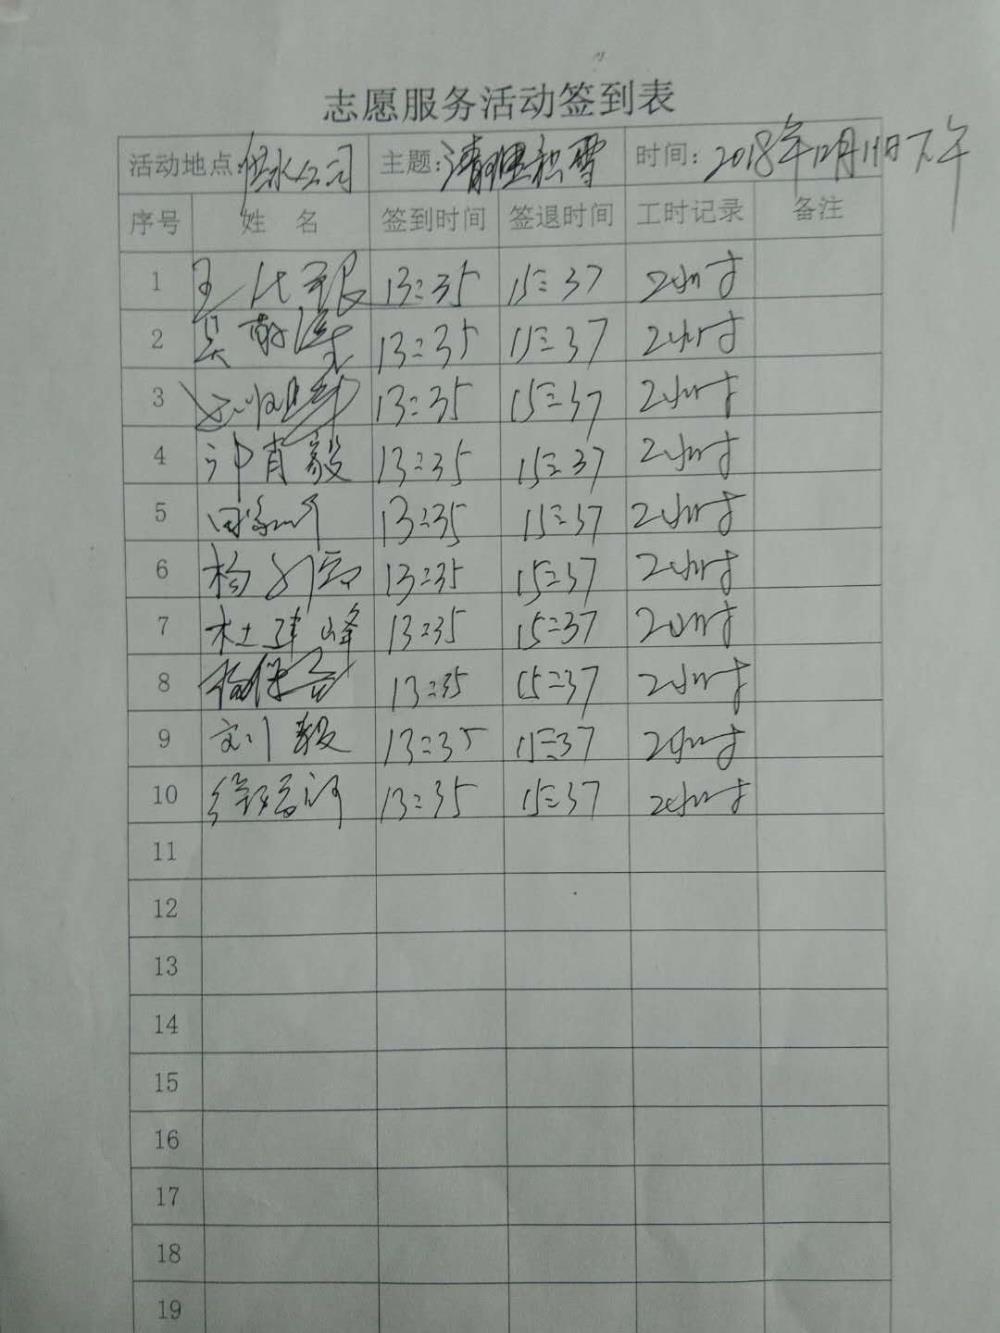 志愿服务活动签到表
活动地点: 供水公司 主题: 清理积雪 时间: 2018年12月11日下午
序号 姓 名 签到时间 签退时间 工时记录 备注
1 13:35 15:37 2小时
2 13:35 15:37 2小时
3 13:35 15:37 2小时
4 肖毅 13:35 15:37 2小时
5 田 13:35 15:37 2小时
6 杨 13:35 15:37 2小时
7 杜建峰 13:35 15:37 2小时
8 杨保 13:35 15:37 2小时
9 刘毅 13:35 15:37 2小时
10 徐 13:35 15:37 2小时
11
12
13
14
15
16
17
18
19